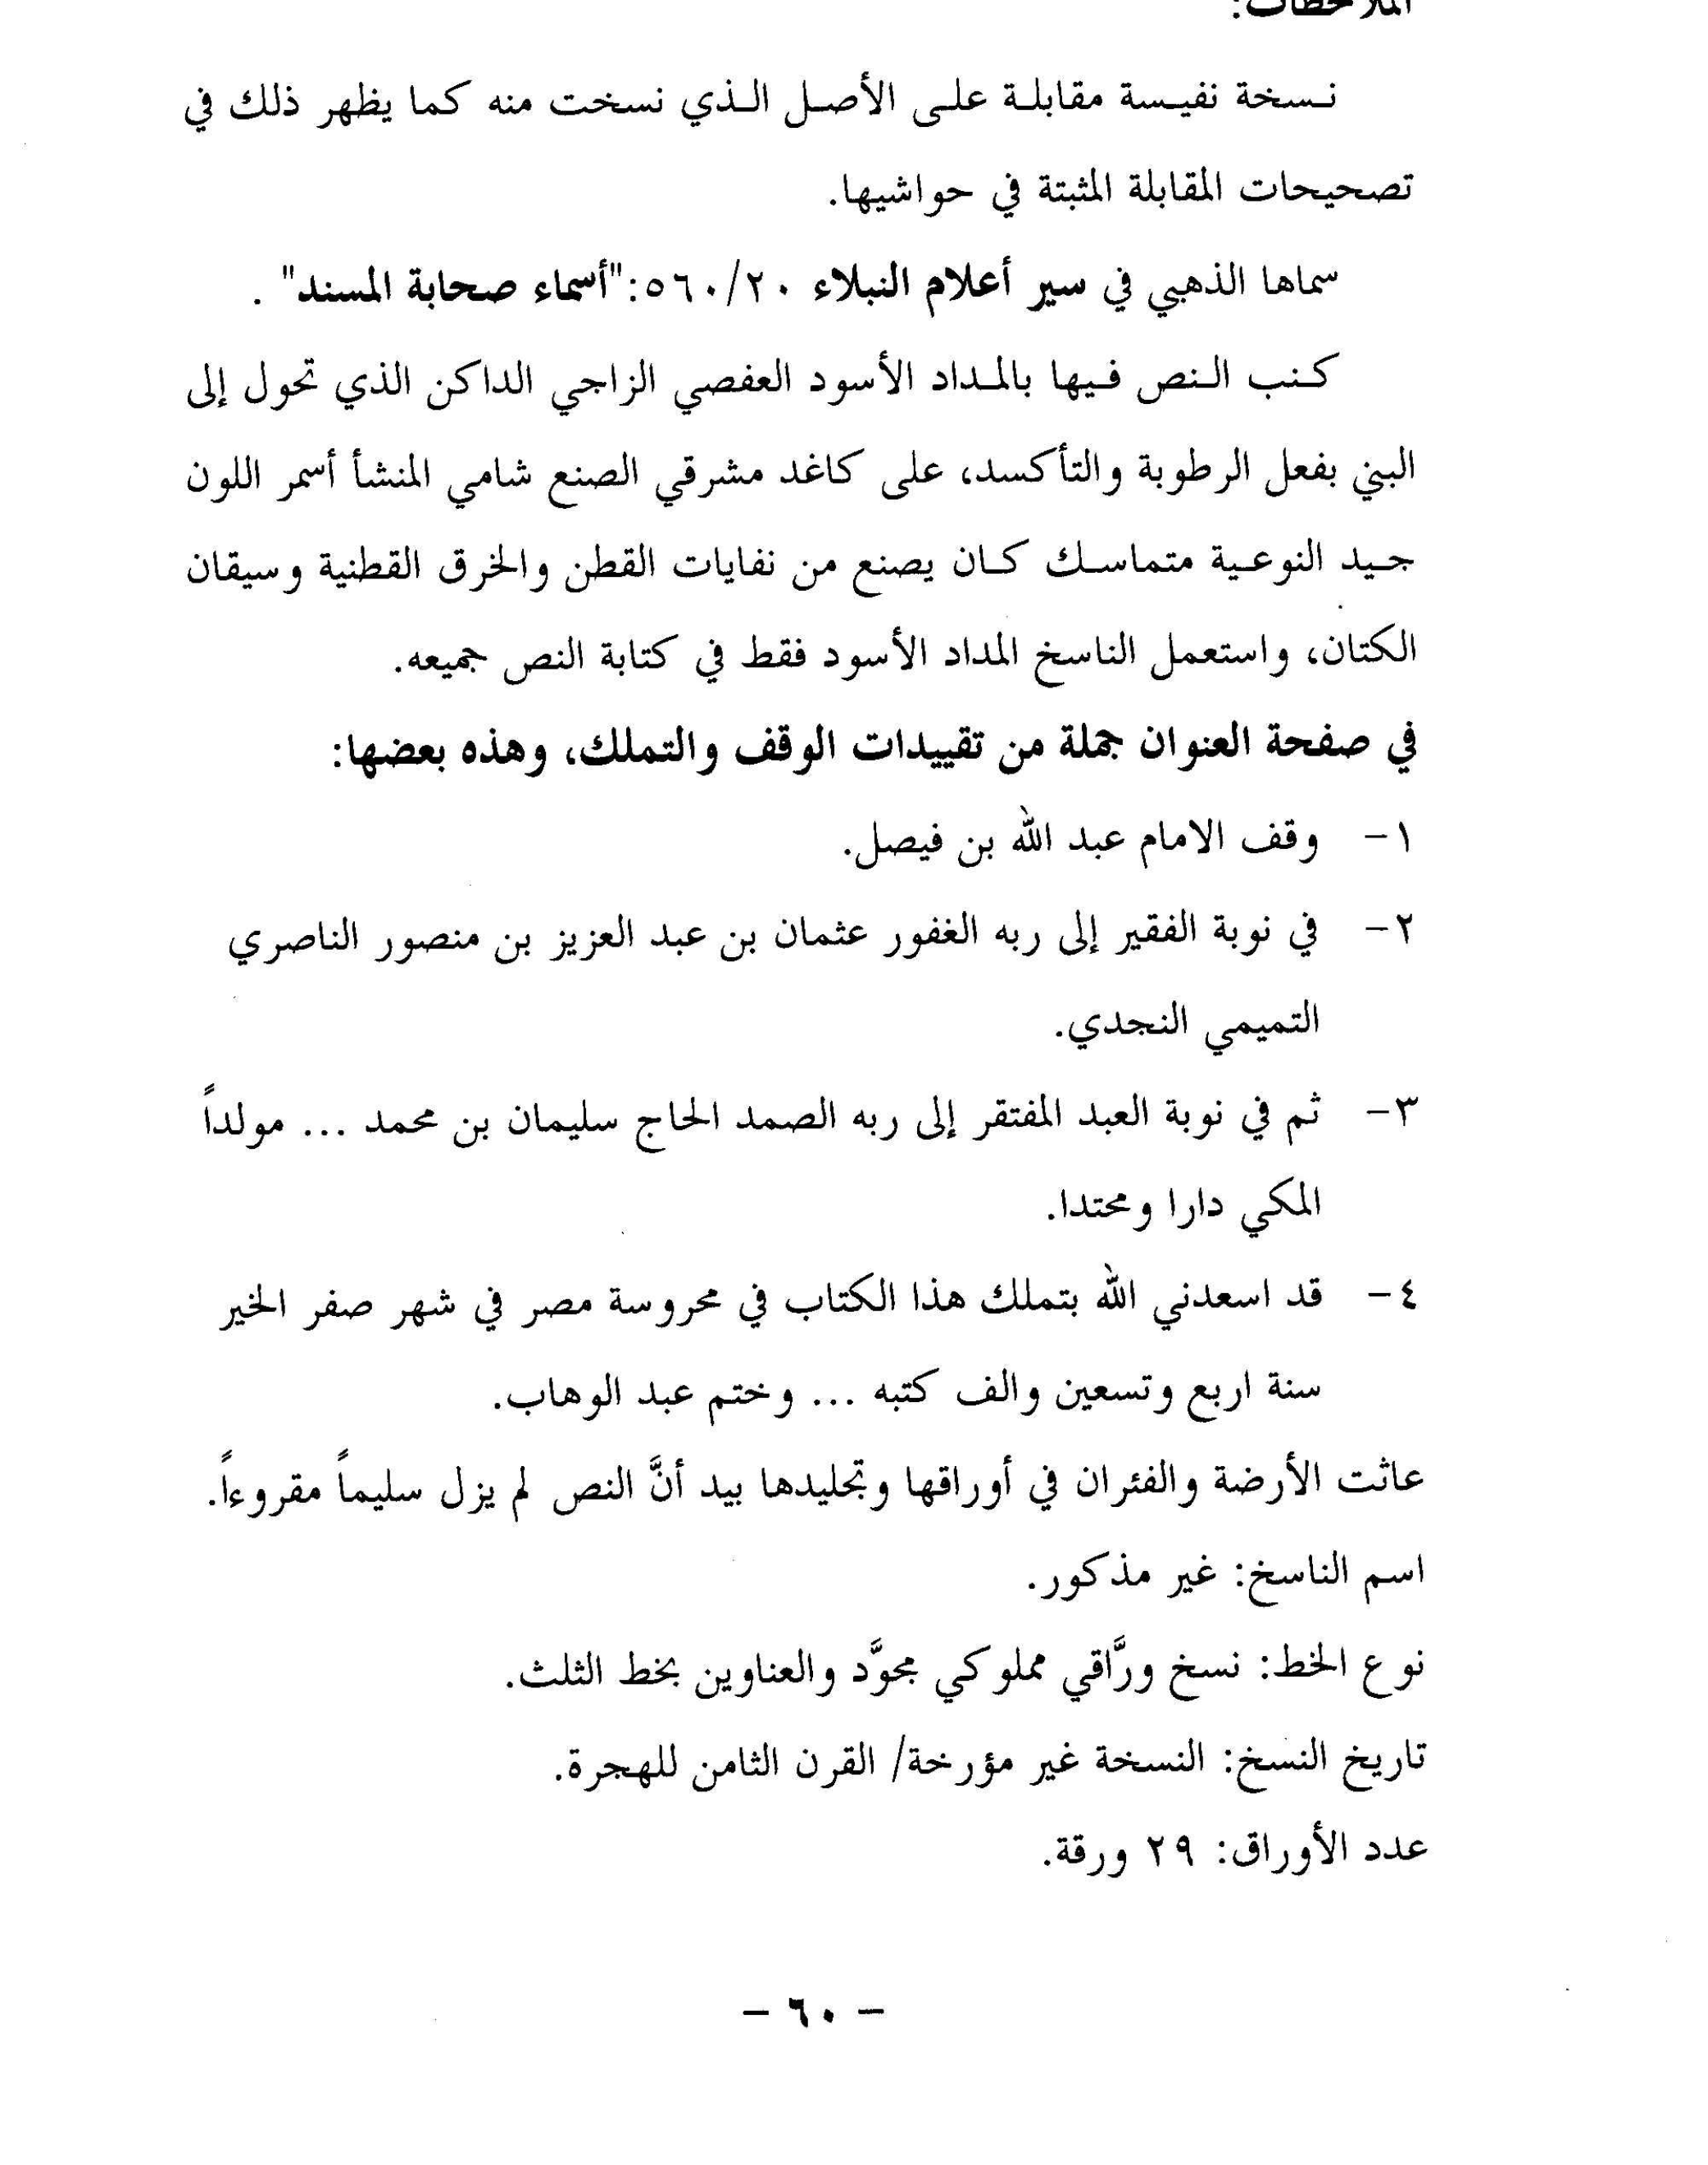 الملاحظات:
نسخة نفيسة مقابلة على الأصل الذي نسخت منه كما يظهر ذلك في
تصحيحات المقابلة المثبتة في حواشيها.
سماها الذهبي في سير أعلام النبلاء ٢٠/٥٦٠:"أسماء صحابة المسند" .
كتب النص فيها بالمداد الأسود العفصي الزاجي الداكن الذي تحول إلى
البني بفعل الرطوبة والتأكسد، على كاغد مشرقي الصنع شامي المنشأ أسمر اللون
جيد النوعية متماسك كان يصنع من نفايات القطن والخرق القطنية وسيقان
الكتان، واستعمل الناسخ المداد الأسود فقط في كتابة النص جميعه.
في صفحة العنوان جملة من تقييدات الوقف والتملك، وهذه بعضها:
١- وقف الامام عبد الله بن فيصل.
٢- في نوبة الفقير إلى ربه الغفور عثمان بن عبد العزيز بن منصور الناصري
التميمي النجدي.
٣- ثم في نوبة العبد المفتقر إلى ربه الصمد الحاج سليمان بن محمد ... مولداً
المكي دارا ومحتدا.
٤- قد اسعدني الله بتملك هذا الكتاب في محروسة مصر في شهر صفر الخير
سنة اربع وتسعين والف كتبه ... وختم عبد الوهاب.
عاثت الأرضة والفئران في أوراقها وتجليدها بيد أنَّ النص لم يزل سليماً مقروءاً.
اسم الناسخ: غير مذكور.
نوع الخط: نسخ ورَّاقي مملوكي مجوَّد والعناوين بخط الثلث.
تاريخ النسخ: النسخة غير مؤرخة/ القرن الثامن للهجرة.
عدد الأوراق: ٢٩ ورقة.
- ٦٠ -